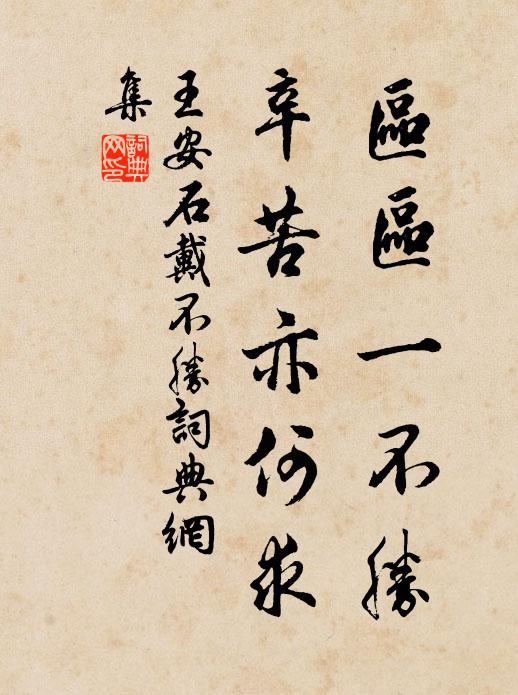 區區一不勝
辛苦亦何求
王安石戴不勝詞典網
集
詞典
網印